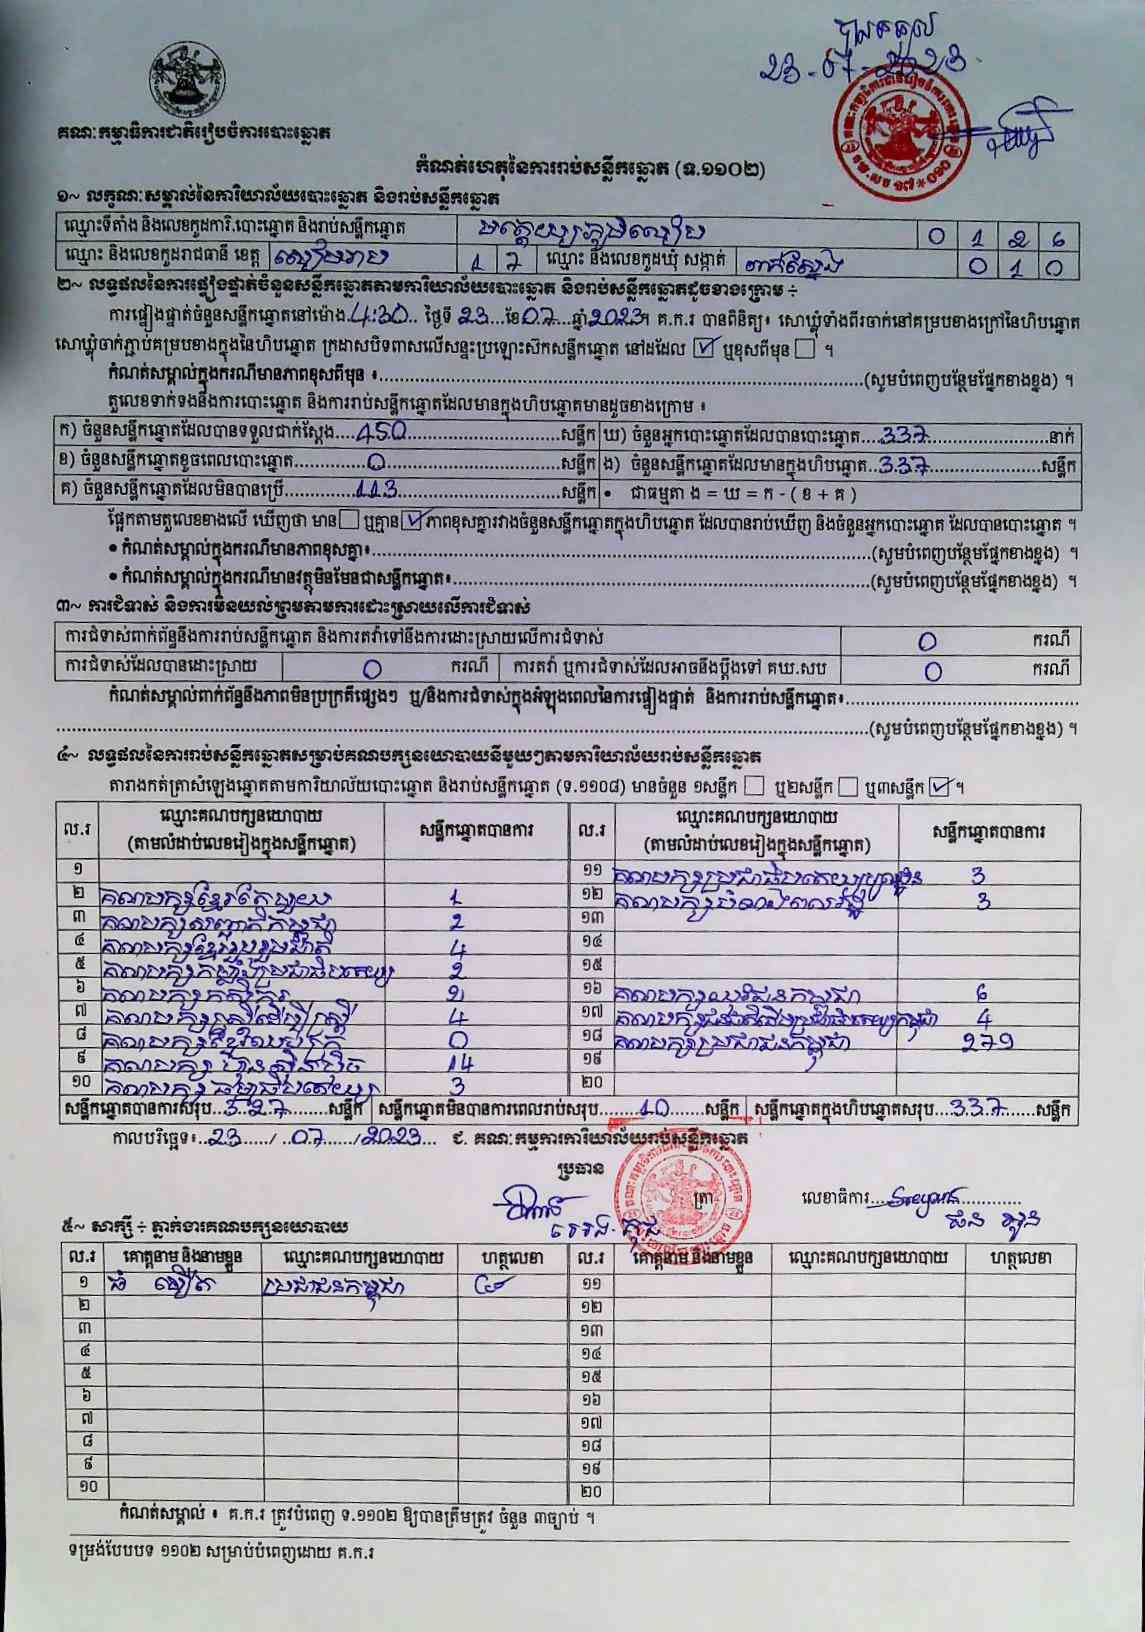 បានទទួល
23-07-2023
គណៈកម្មាធិការជាតិរៀបចំការបោះឆ្នោត
កំណត់ហេតុនៃការរាប់សន្លឹកឆ្នោត (ទ.១១០២)
១~ លក្ខណៈសម្គាល់នៃការិយាល័យបោះឆ្នោត និងរាប់សន្លឹកឆ្នោត
ឈ្មោះទីតាំង និងលេខកូដការិ.បោះឆ្នោត និងរាប់សន្លឹកឆ្នោត មត្តេយ្យភូមិ 0 1 2 6
ឈ្មោះ និងលេខកូដរាជធានី ខេត្ត សៀមរាប 1 7 ឈ្មោះ និងលេខកូដឃុំ សង្កាត់ ពាក់ស្នែង 0 1 0
២~ លទ្ធផលនៃការផ្ទៀងផ្ទាត់ចំនួនសន្លឹកឆ្នោតតាមការិយាល័យបោះឆ្នោត និងរាប់សន្លឹកឆ្នោតដូចខាងក្រោម ÷
ការផ្ទៀងផ្ទាត់ចំនួនសន្លឹកឆ្នោតនៅម៉ោង.4:30.. ថ្ងៃទី 23...ខែ07...ឆ្នាំ2023។ គ.ក.រ បានពិនិត្យ៖ សោឃ្លុំទាំងពីរចាក់នៅគម្របខាងក្រៅនៃហិបឆ្នោត
សោឃ្លុំចាក់ភ្ជាប់គម្របខាងក្នុងនៃហិបឆ្នោត ក្រដាសបិទពាសលើសន្ទះប្រឡោះស៊កសន្លឹកឆ្នោត នៅដដែល ☑ ឬខុសពីមុន ☐ ។
កំណត់សម្គាល់ក្នុងករណីមានភាពខុសពីមុន ៖..........(សូមបំពេញបន្ថែមផ្នែកខាងខ្នង) ។
តួលេខទាក់ទងនឹងការបោះឆ្នោត និងការរាប់សន្លឹកឆ្នោតដែលមានក្នុងហិបឆ្នោតមានដូចខាងក្រោម ៖
ក) ចំនួនសន្លឹកឆ្នោតដែលបានទទួលជាក់ស្តែង....450..........សន្លឹក ឃ) ចំនួនអ្នកបោះឆ្នោតដែលបានបោះឆ្នោត...337..........នាក់
ខ) ចំនួនសន្លឹកឆ្នោតខូចពេលបោះឆ្នោត..........0..........សន្លឹក ង) ចំនួនសន្លឹកឆ្នោតដែលមានក្នុងហិបឆ្នោត..337..........សន្លឹក
គ) ចំនួនសន្លឹកឆ្នោតដែលមិនបានប្រើ..........113..........សន្លឹក • ជាធម្មតា ង = ឃ = ក - ( ខ + គ )
ផ្អែកតាមតួលេខខាងលើ ឃើញថា មាន ☐ ឬគ្មាន ☑ ភាពខុសគ្នារវាងចំនួនសន្លឹកឆ្នោតក្នុងហិបឆ្នោត ដែលបានរាប់ឃើញ និងចំនួនអ្នកបោះឆ្នោត ដែលបានបោះឆ្នោត ។
• កំណត់សម្គាល់ក្នុងករណីមានភាពខុសគ្នា៖..........(សូមបំពេញបន្ថែមផ្នែកខាងខ្នង) ។
• កំណត់សម្គាល់ក្នុងករណីមានវត្ថុមិនមែនជាសន្លឹកឆ្នោត៖..........(សូមបំពេញបន្ថែមផ្នែកខាងខ្នង) ។
៣~ ការជំទាស់ និងការមិនយល់ព្រមតាមការដោះស្រាយលើការជំទាស់
ការជំទាស់ពាក់ព័ន្ធនឹងការរាប់សន្លឹកឆ្នោត និងការតវ៉ាទៅនឹងការដោះស្រាយលើការជំទាស់ 0 ករណី
ការជំទាស់ដែលបានដោះស្រាយ 0 ករណី ការតវ៉ា ឬការជំទាស់ដែលអាចនឹងប្តឹងទៅ គឃ.សប 0 ករណី
កំណត់សម្គាល់ពាក់ព័ន្ធនឹងភាពមិនប្រក្រតីផ្សេងៗ ឬ/និងការជំទាស់ក្នុងអំឡុងពេលនៃការផ្ទៀងផ្ទាត់ និងការរាប់សន្លឹកឆ្នោត៖..........
..........(សូមបំពេញបន្ថែមផ្នែកខាងខ្នង) ។
៤~ លទ្ធផលនៃការរាប់សន្លឹកឆ្នោតសម្រាប់គណបក្សនយោបាយនីមួយៗតាមការិយាល័យរាប់សន្លឹកឆ្នោត
តារាងកត់ត្រាសំឡេងឆ្នោតតាមការិយាល័យបោះឆ្នោត និងរាប់សន្លឹកឆ្នោត (ទ.១១០៨) មានចំនួន ១សន្លឹក ☐ ឬ២សន្លឹក ☐ ឬ៣សន្លឹក ☑ ។
ល.រ ឈ្មោះគណបក្សនយោបាយ (តាមលំដាប់លេខរៀងក្នុងសន្លឹកឆ្នោត) សន្លឹកឆ្នោតបានការ ល.រ ឈ្មោះគណបក្សនយោបាយ (តាមលំដាប់លេខរៀងក្នុងសន្លឹកឆ្នោត) សន្លឹកឆ្នោតបានការ
១ ១១ គណបក្សប្រជាធិបតេយ្យមូលដ្ឋាន 3
២ គណបក្សខ្មែរតែមួយ 1 ១២ គណបក្សបំណងពលរដ្ឋ 3
៣ គណបក្សសញ្ជាតិកម្ពុជា 2 ១៣
៤ គណបក្សខ្មែររួបរួមជាតិ 4 ១៤
៥ គណបក្សកម្លាំងប្រជាធិបតេយ្យ 2 ១៥
៦ គណបក្សកសិករ 2 ១៦ គណបក្សយុវជនកម្ពុជា 6
៧ គណបក្សស្ត្រីដើម្បីស្ត្រី 4 ១៧ គណបក្សជនជាតិដើមប្រជាធិបតេយ្យកម្ពុជា 4
៨ គណបក្សខ្មែរឈប់ក្រ 0 ១៨ គណបក្សប្រជាជនកម្ពុជា 279
៩ គណបក្ស ហ៊្វុនស៊ិនប៉ិច 14 ១៩
១០ គណបក្ស ធម្មាធិបតេយ្យ 3 ២០
សន្លឹកឆ្នោតបានការសរុប...327.......សន្លឹក សន្លឹកឆ្នោតមិនបានការពេលរាប់សរុប.......10.......សន្លឹក សន្លឹកឆ្នោតក្នុងហិបឆ្នោតសរុប...337......សន្លឹក
កាលបរិច្ឆេទ៖..23...../..07....../2023... ជ. គណៈកម្មការការិយាល័យរាប់សន្លឹកឆ្នោត
ប្រធាន
ត្រា លេខាធិការ..........
៥~ សាក្សី ÷ ភ្នាក់ងារគណបក្សនយោបាយ
ល.រ គោត្តនាម និងនាមខ្លួន ឈ្មោះគណបក្សនយោបាយ ហត្ថលេខា ល.រ គោត្តនាម និងនាមខ្លួន ឈ្មោះគណបក្សនយោបាយ ហត្ថលេខា
១ ប្រជាជនកម្ពុជា ១១
២ ១២
៣ ១៣
៤ ១៤
៥ ១៥
៦ ១៦
៧ ១៧
៨ ១៨
៩ ១៩
១០ ២០
កំណត់សម្គាល់ ៖ គ.ក.រ ត្រូវបំពេញ ទ.១១០២ ឱ្យបានត្រឹមត្រូវ ចំនួន ៣ច្បាប់ ។
ទម្រង់បែបបទ ១១០២ សម្រាប់បំពេញដោយ គ.ក.រ